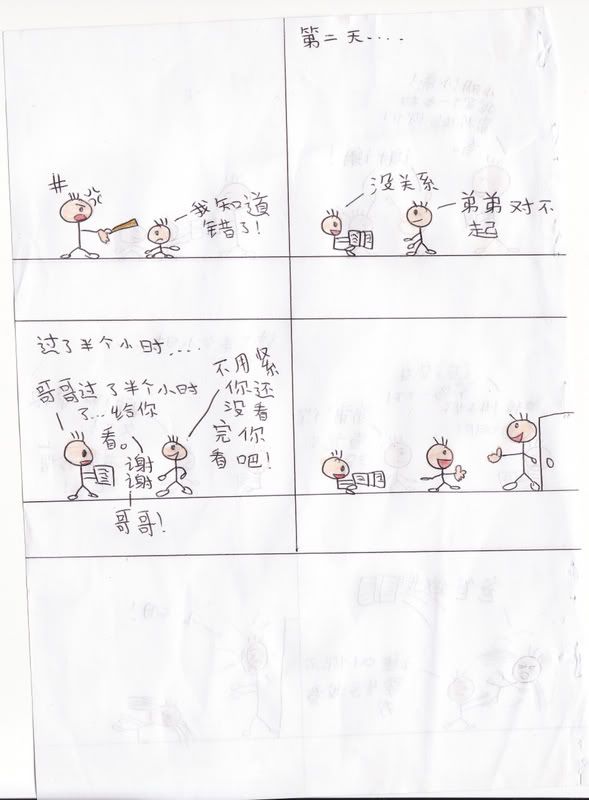 我知道
错了!
第二天....
没关系
弟弟对不
起
过了半个小时....
哥哥过了半个小时
了...给你
看。
谢
谢
哥哥!
不用紧
你还
没看
完你
看吧!